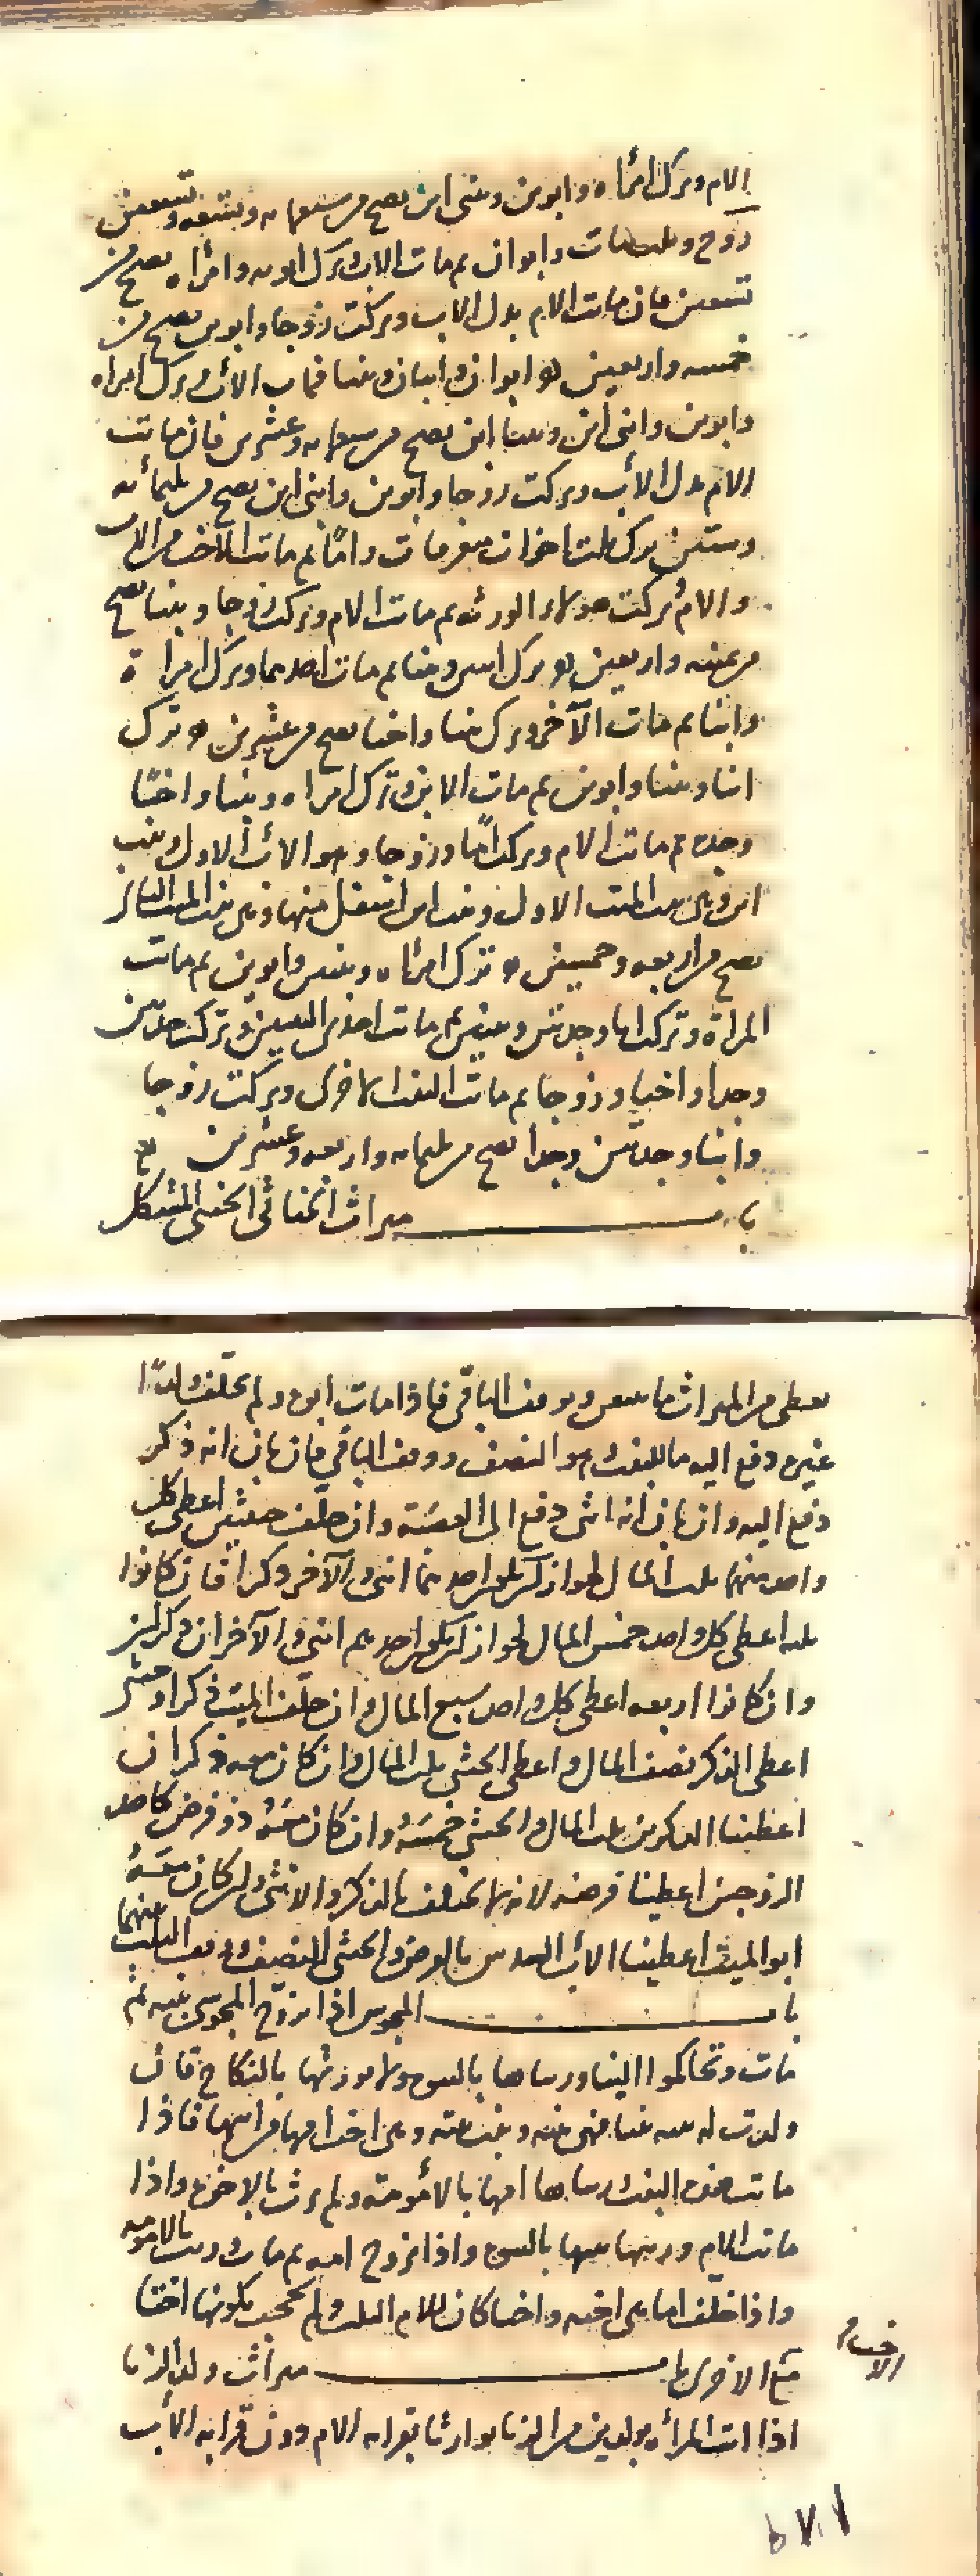 الام وترك امرأه وابوين وبنتي ابن تصح من سبعمايه وتسعه وتسعين
زوج وثلث بنات وابوان ثم مات الاب وترك ابويه وامرأه تصح من
تسعين فان ماتت الام بدل الاب وتركت زوجا وابوين تصح من
خمسه واربعين ه ابوان وابنان وبنتا فمات الاب وترك امراه
وابوين وابني ابن وبنتا ابن تصح من سبعمايه وعشرين فان ماتت
الام بدل الاب وتركت زوجا وابوين وابني ابن تصح من ثلثمائه
وستين ترك ثلث اخوات متفرقات واما ثم ماتت الاخت من الاب
والام وتركت هولاء الورثه ثم ماتت الام وتركت زوجا وبنتا تصح
من خمسه واربعين ه ترك ابنين وبنتا ثم مات احدهما وترك امراة
وابنا ثم مات الآخر وترك بنتا واختا تصح من عشرين ه ترك
ابنا وبنتا وابوين ثم مات الابن وترك امراه وبنتا واختا
وجده ثم ماتت الام وتركت أما وزوجا وهو الاب الاول وبنت
ابن وهي بنت الميت الاول وبنت ابن اسفل منها وهي بنت الميت الثاني
تصح من اربعه وخمسين ه ترك امرأه وبنتين وابوين ثم ماتت
المراة وتركت اما وجدتين وبنتين ثم ماتت احدى البنتين وتركت جدتين
وجدا واختا وزوجا ثم ماتت البنت الاخرى وتركت زوجا
وابنا وجدتين وجدا تصح من ثلثمايه واربعه وعشرين
باب ميراث الخناثى الخنثى المشكل
يعطى من الميراث ما يتيقن ويوقف الباقي فاذا مات ابوه ولم يخلف ولدا
غيره دفع اليه ما للبنت وهو النصف ووقف الباقي فان بان انه ذكر
دفع اليه وان بان انه انثى دفع الى العصبة وان خلف خنثيين اعطى كل
واحد منهما ثلث المال لجواز كون كل واحد منهما انثى والآخر ذكرا فان كانوا
ثلثه اعطى كل واحد خمس المال لجواز كون كل واحد منهم انثى والآخران ذكرين
وان كانوا اربعه اعطى كل واحد سبع المال وان خلف الميت ذكرا وخنثى
اعطى الذكر نصف المال واعطى الخنثى ثلث المال وان كان معه ذكران
اعطينا الذكرين ثلث المال والخنثى خمسه وان كان معه ذو فرض كاحد
الزوجين اعطينا فرضه لانه لا يختلف بالذكر والانثى ولو كان معه
ابو الميت اعطينا الاب السدس بالفرض والخنثى النصف ووقف الثلث بينهما
باب المجوس اذا تزوج المجوسي بنته ثم
مات وتحاكموا الينا ورثناها بالنسب ولا نورثها بالنكاح فان
ولدت له بنته بنتا فهي بنته وبنت بنته وهي اخت امها من ابيها فاذا
ماتت هذه البنت ورثناها امها بالأمومة ولم ترث بالاخوه واذا
ماتت الام ورثتها بنتها بالنسب واذا تزوج امه ثم مات ورثت بالامومه
واذا خلف اما هي اخته واختا كان للام الثلث ولم تحجب بكونها اختا
مع الاخرى باب ميراث ولد الزنا
الاخت
اذا اتت المرأه بولدين من الزنا توارثا بقرابه الام دون قرابه الأب